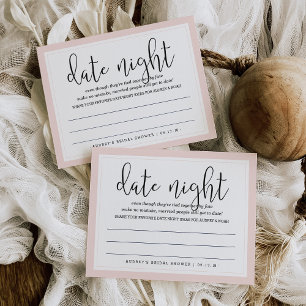 date night
even though they've tied engaged by fate
make no mistake, married people still get to date!
SHARE YOUR FAVORITE DATE NIGHT IDEAS FOR AUBREY & ROSS!
AUBREY'S BRIDAL SHOWER | 09.17.19
date night
even though they've tied engaged by fate
make no mistake, married people still get to date!
SHARE YOUR FAVORITE DATE NIGHT IDEAS FOR AUBREY & ROSS!
AUBREY'S BRIDAL SHOWER | 09.17.19